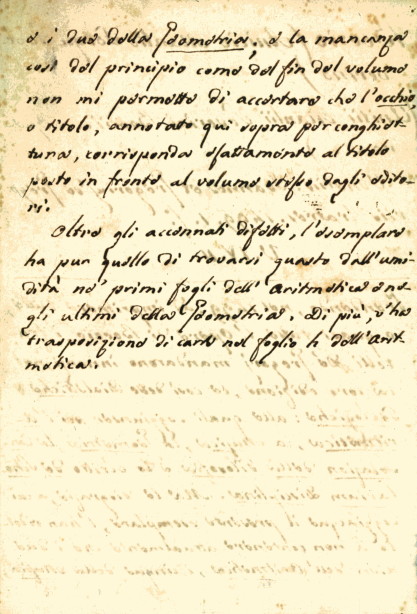 e i due della Geometria, e la mancanza
così del principio come del fin del volume
non mi permette di accertare che l'occhio,
o titolo, annotato qui sopra per conghiet-
tura, corrisponda esattamente al titolo
posto in fronte al volume stesso dagli edito-
ri.
Oltre gli accennati difetti, l'esemplare
ha pur quello di trovarsi guasto dall'umi-
dità ne' primi fogli dell'Aritmetica e ne-
gli ultimi della Geometria. Di più, v'ha
trasposizione di carte nel foglio h dell'Arit-
metica.